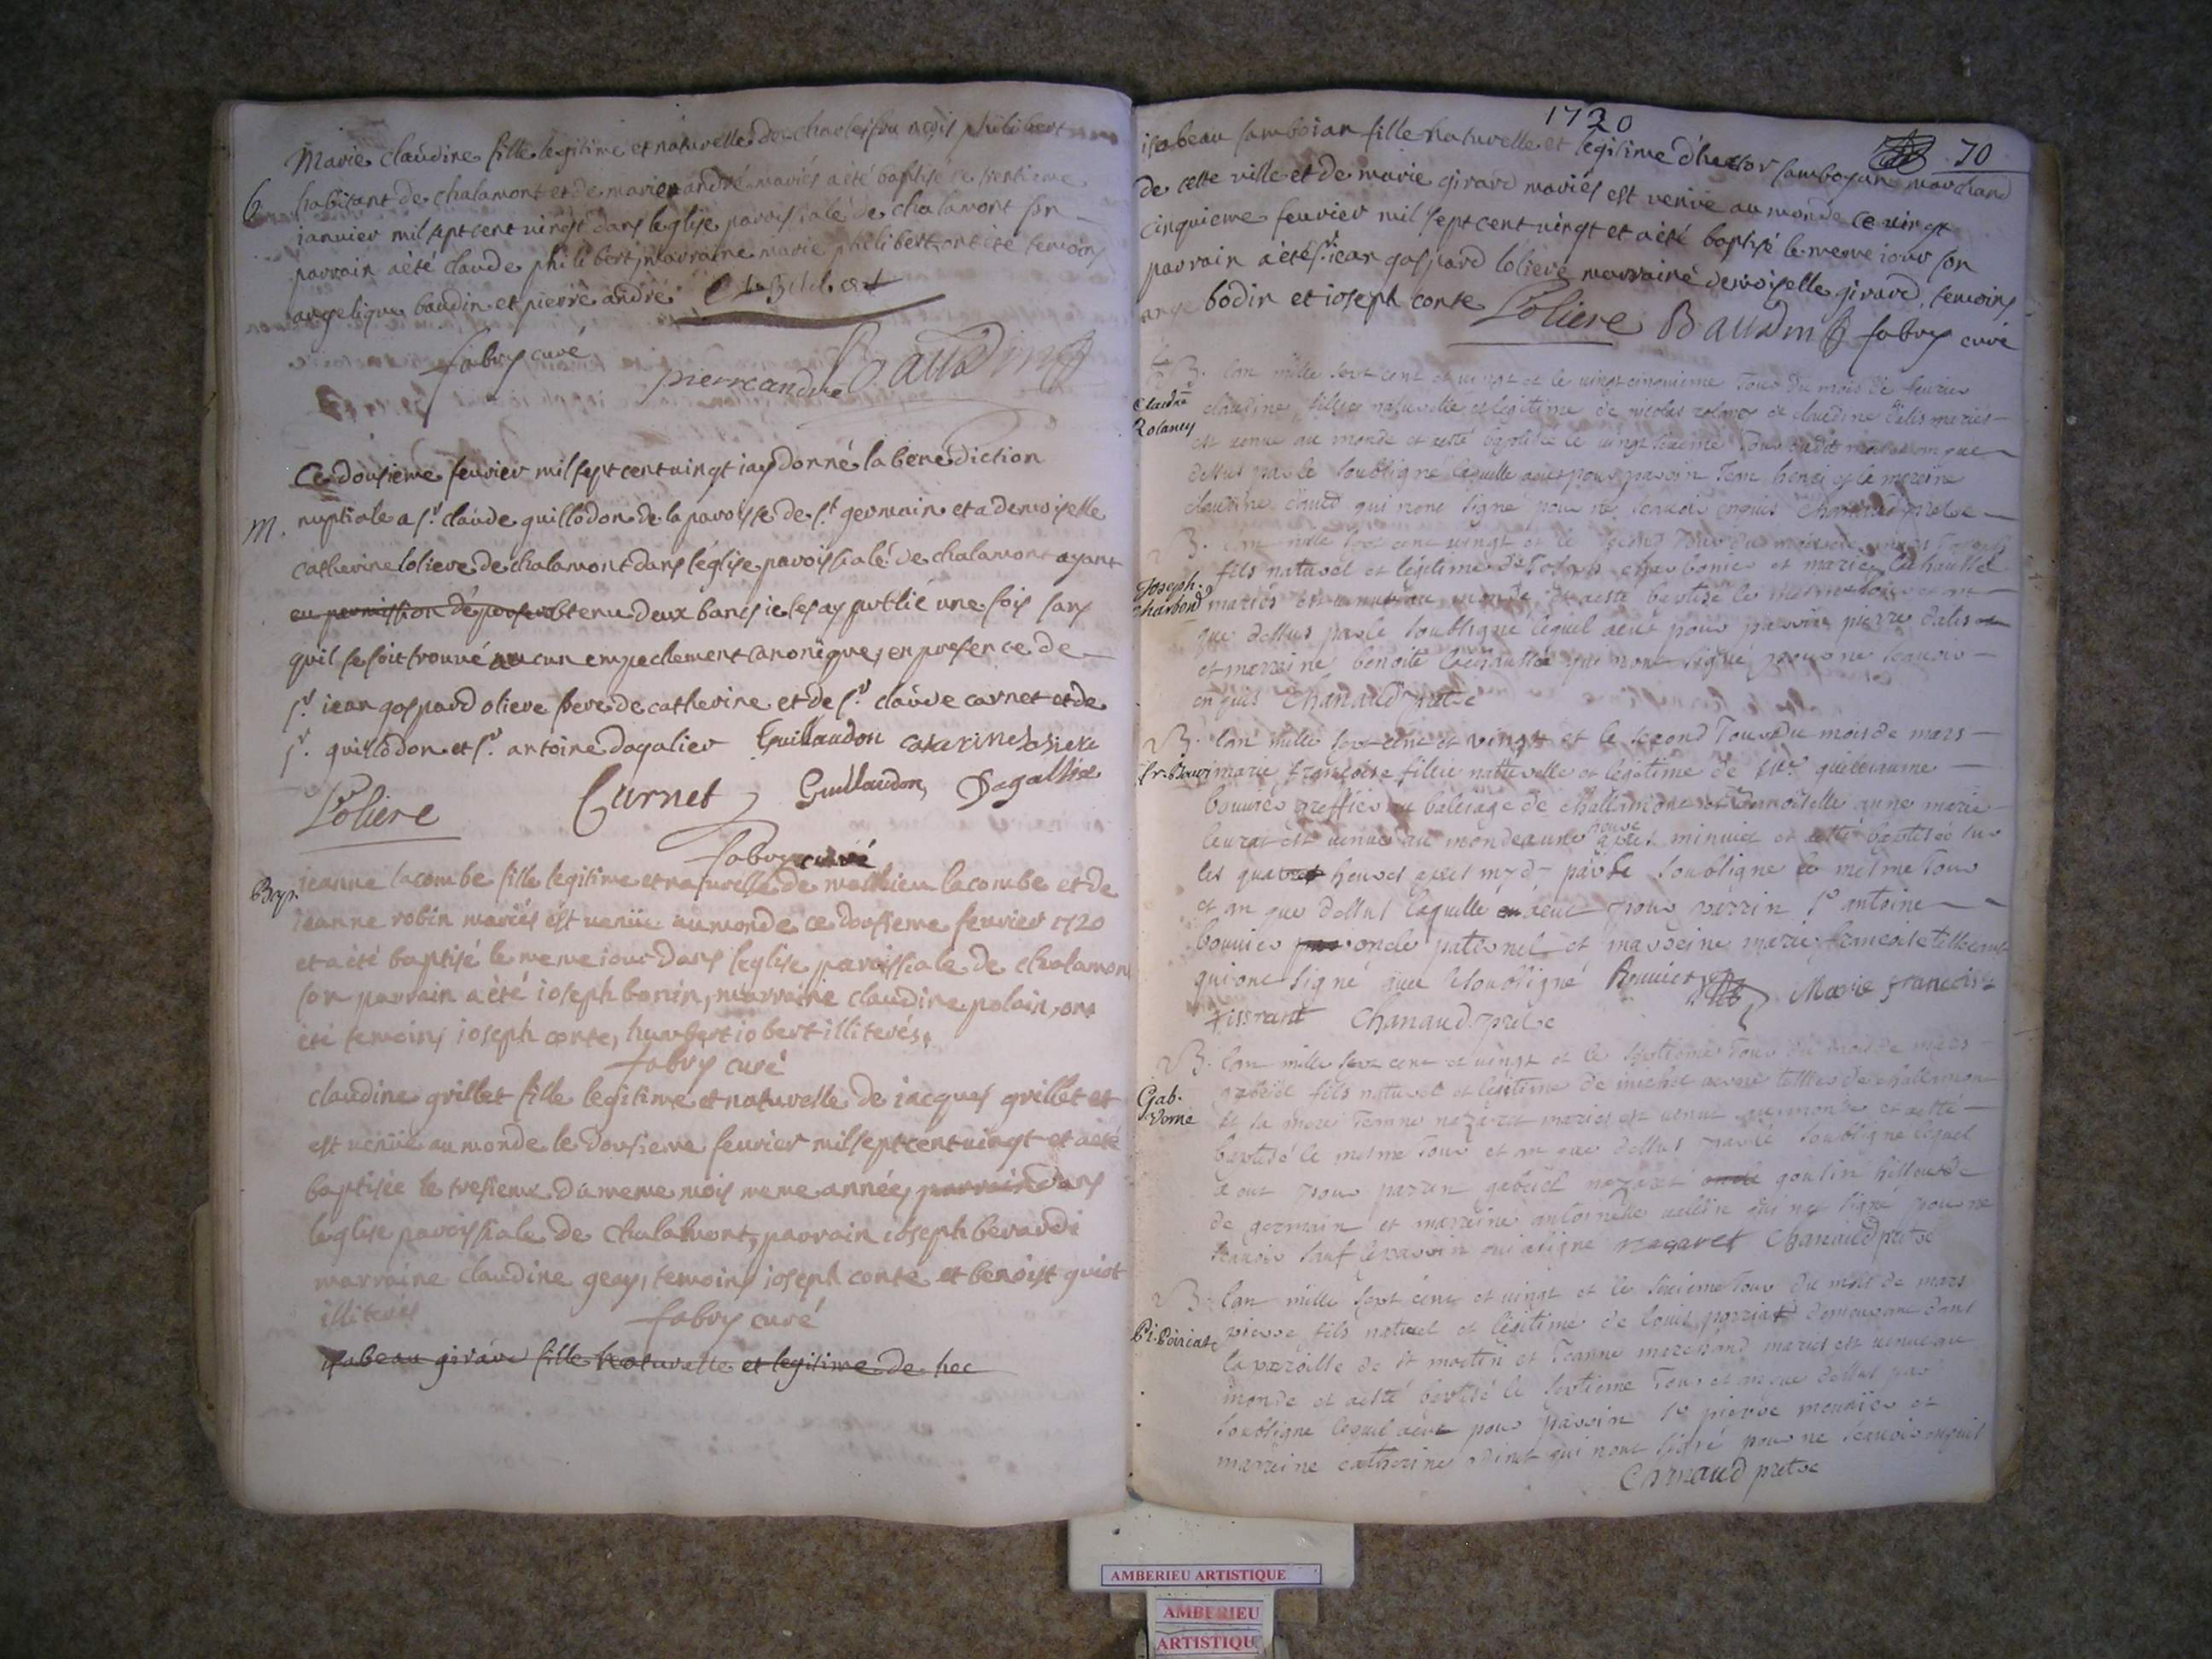 Marie claudine fille legitime et naturelle de charles françois philibert
B. habitant de chalamont et de marie andré mariés a été baptisé ce trentieme
janvier mil sept cent vingt dans leglise paroissiale de chalamont son
parrain a été claude philibert, marraine marie philibert, ont été temoins
angelique baudin et pierre andré
fabry curé pierre andre Baudin
Ce dousieme feuvier mil sept cent vingt iay donné la benediction
M. nuptiale a sr. claude guillodon de la paroisse de st germain et a demoiselle
catherine loliere de chalamont dans l'église paroissiale de chalamont ayant
eu permission de obtenu deux bancs ie les ay publié une fois sans
quil se soit trouvé aucun empechement canonique, en presence de
sr. iean gaspard oliere frere de catherine et de sr. claude carnet et de
sr. guillodon et sr. antoine dagalier Guillaudon catarine loliere
Loliere Curnet Guillaudon, Dagallier
fabry curé
Bap. jeanne lacombe fille legitime et naturelle de mathieu lacombe et de
jeanne robin mariés est venüe au monde ce dousieme feuvier 1720
et a été baptisé le meme iour dans leglise paroissiale de chalamon
son parrain a été ioseph bonin, marraine claudine polain, ont
été temoins ioseph conte, humbert iobert illiterés.
fabry curé
claudine grillet fille legitime et naturelle de iacques grillet et
est venüe au monde le dousieme feuvier mil sept cent vingt et a été
baptisée le tresieme du meme mois meme année, parrain dans
leglise paroissiale de chalamont, parrain ioseph berardi
marraine claudine geay, temoins ioseph conte et benoist guiot
illiterés fabry curé
isabeau girard fille naturelle et legitime de hec
1720
70
isabeau samboian fille naturelle et legitime d'hector samboyan marchand
de cette ville et de marie girard mariés est venüe au monde ce vingt
cinquieme feuvier mil sept cent vingt et a été baptisé le meme iour son
parrain a été sr. iean gaspard loliere marraine demoiselle girard, temoins
ange bodin et ioseph conte Loliere Baudin fabry curé
B. lan mille sept cent et vingt et le vingt cinquieme Jour du mois de feurier
Claudne Rolancy
claudine fillie naturelle et legitime de nicolas rolancy et claudine dalis mariés
est venue au monde et a esté baptisée le vingt sixieme Jour
dessus par le soubsigné laquelle a eu pour parrin Jean henri et la mareine
claudine qui nont signé pour ne scauoir enquis Chanaud pretre
B. lan mille sept cent vingt et le second Jour du mois de mars Joseph
Joseph. Charbond
fils naturel et legitime de Joseph charbonier et marie lachausse
mariés est venu au monde et a esté baptisé le mesme Jour et an
que dessus par le soubsigné lequel a eu pour parrin pierre dalis
et marreine benoite lachaussee qui nont signé pour ne scauoir
enquis Chanaud pretre
B. lan mille sept cent et vingt et le second Jour du mois de mars
fr. Bouvi
marie francoise fillie naturelle et legitime de sieur guillaume
bouuier greffier au baliage de challamont et demoiselle anne marie
est venue au monde a une heure apres minuict et a esté baptisée sur
les quatre heures apres mydy par le soubsigne le mesme Jour
et an que dessus laquelle a eu pour parrin sr antoine
bouuier oncle paternel et marreine marie francoise
qui ont signé auec le soubsigné Bouuier Marie francoise
tissrant Chanaud pretre
B. lan mille sept cent et vingt et le septieme Jour du mois de mars
Gab. Verne
gabriel fils naturel et legitime de michel verne de challamon
et la mere Jeanne nazaret mariés est venue au monde et a esté
baptisé le mesme Jour et an que dessus par le soubsigne lequel
a eut pour parrin gabriel nazaret
de germain et marreine antoinette qui na signé pour ne
scauoir sauf le parrin qui a signé nazaret Chanaud pretre
B. lan mille sept cent et vingt et le sixieme Jour du mois de mars
Pi. Poiriat
pierre fils naturel et legitime de louis poiriat demeurant dans
la paroisse de st martin et Jeanne marchand mariés est venu au
monde et a esté baptisé le septieme Jour et an que dessus par
soubsigne lequel a eut pour parrin sr pierre meunier et
marreine catherine qui nont signé pour ne scauoir enquis
Chanaud pretre
AMBERIEU ARTISTIQUE
AMBERIEU
ARTISTIQU